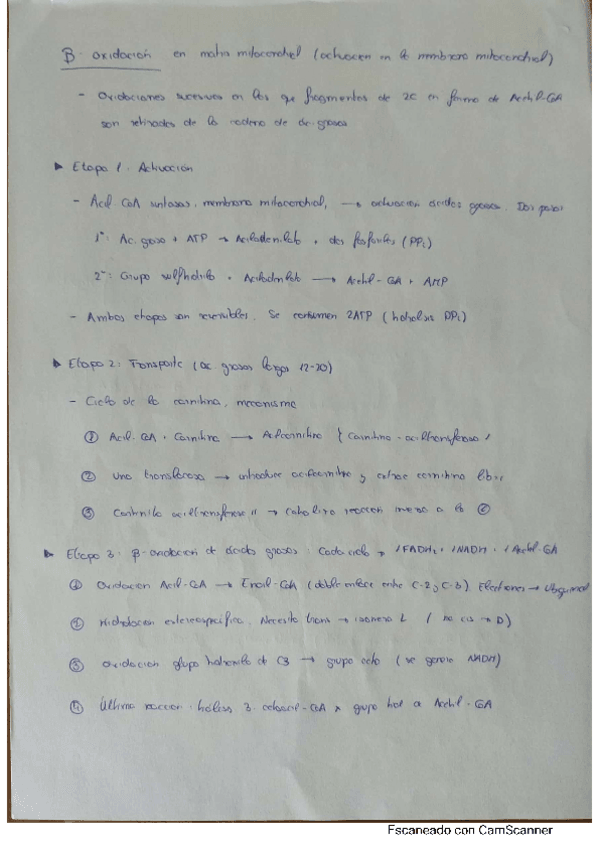 β-oxidación en matriz mitocondrial (activación en la membrana mitocondrial)
- Oxidaciones sucesivas en las que fragmentos de 2C en forma de Acetil-CoA
son retirados de la cadena de ác. grasos
▸ Etapa 1: Activación
- Acil CoA sintasas, membrana mitocondrial, → activación ácidos grasos. Dos pasos
1º: Ac. graso + ATP → Aciladenilato + dos fosfatos (PPi)
2º: Grupo sulfhidrilo + Aciladenilato → Acetil-CoA + AMP
- Ambas etapas son reversibles. Se consumen 2ATP (hidrolisis PPi)
▸ Etapa 2: Transporte (ac. grasos largos 12-20)
- Ciclo de la carnitina, mecanismo
① Acil-CoA + Carnitina → Acilcarnitina Carnitina-aciltransferasa I
② una translocasa → introduce acilcarnitina y extrae carnitina libre
③ Carnitina aciltransferasa II → Cataliza reacción inversa a la
▸ Etapa 3: β-oxidación de ácidos grasos: Cada ciclo → 1FADH2, 1NADH, 1Acetil-CoA
① Oxidación Acil-CoA → Enoil-CoA (doble enlace entre C-2 y C-3). Electrones → Ubiquinol
② Hidratación estereoespecífica. Necesita trans → isomero L (no cis → D)
③ Oxidación grupo hidroxilo de C3 → grupo ceto (se genera NADH)
④ Última reaccion: tiólisis 3-cetoacil-CoA x grupo tiol a Acetil-CoA
Escaneado con CamScanner